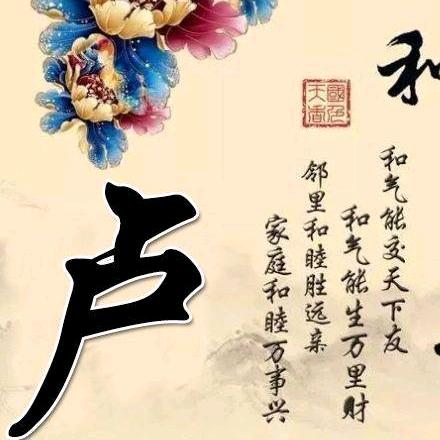 和
和气能交天下友
和气能生万里财
國色
天香
邻里和睦胜远亲
家庭和睦万事兴
卢